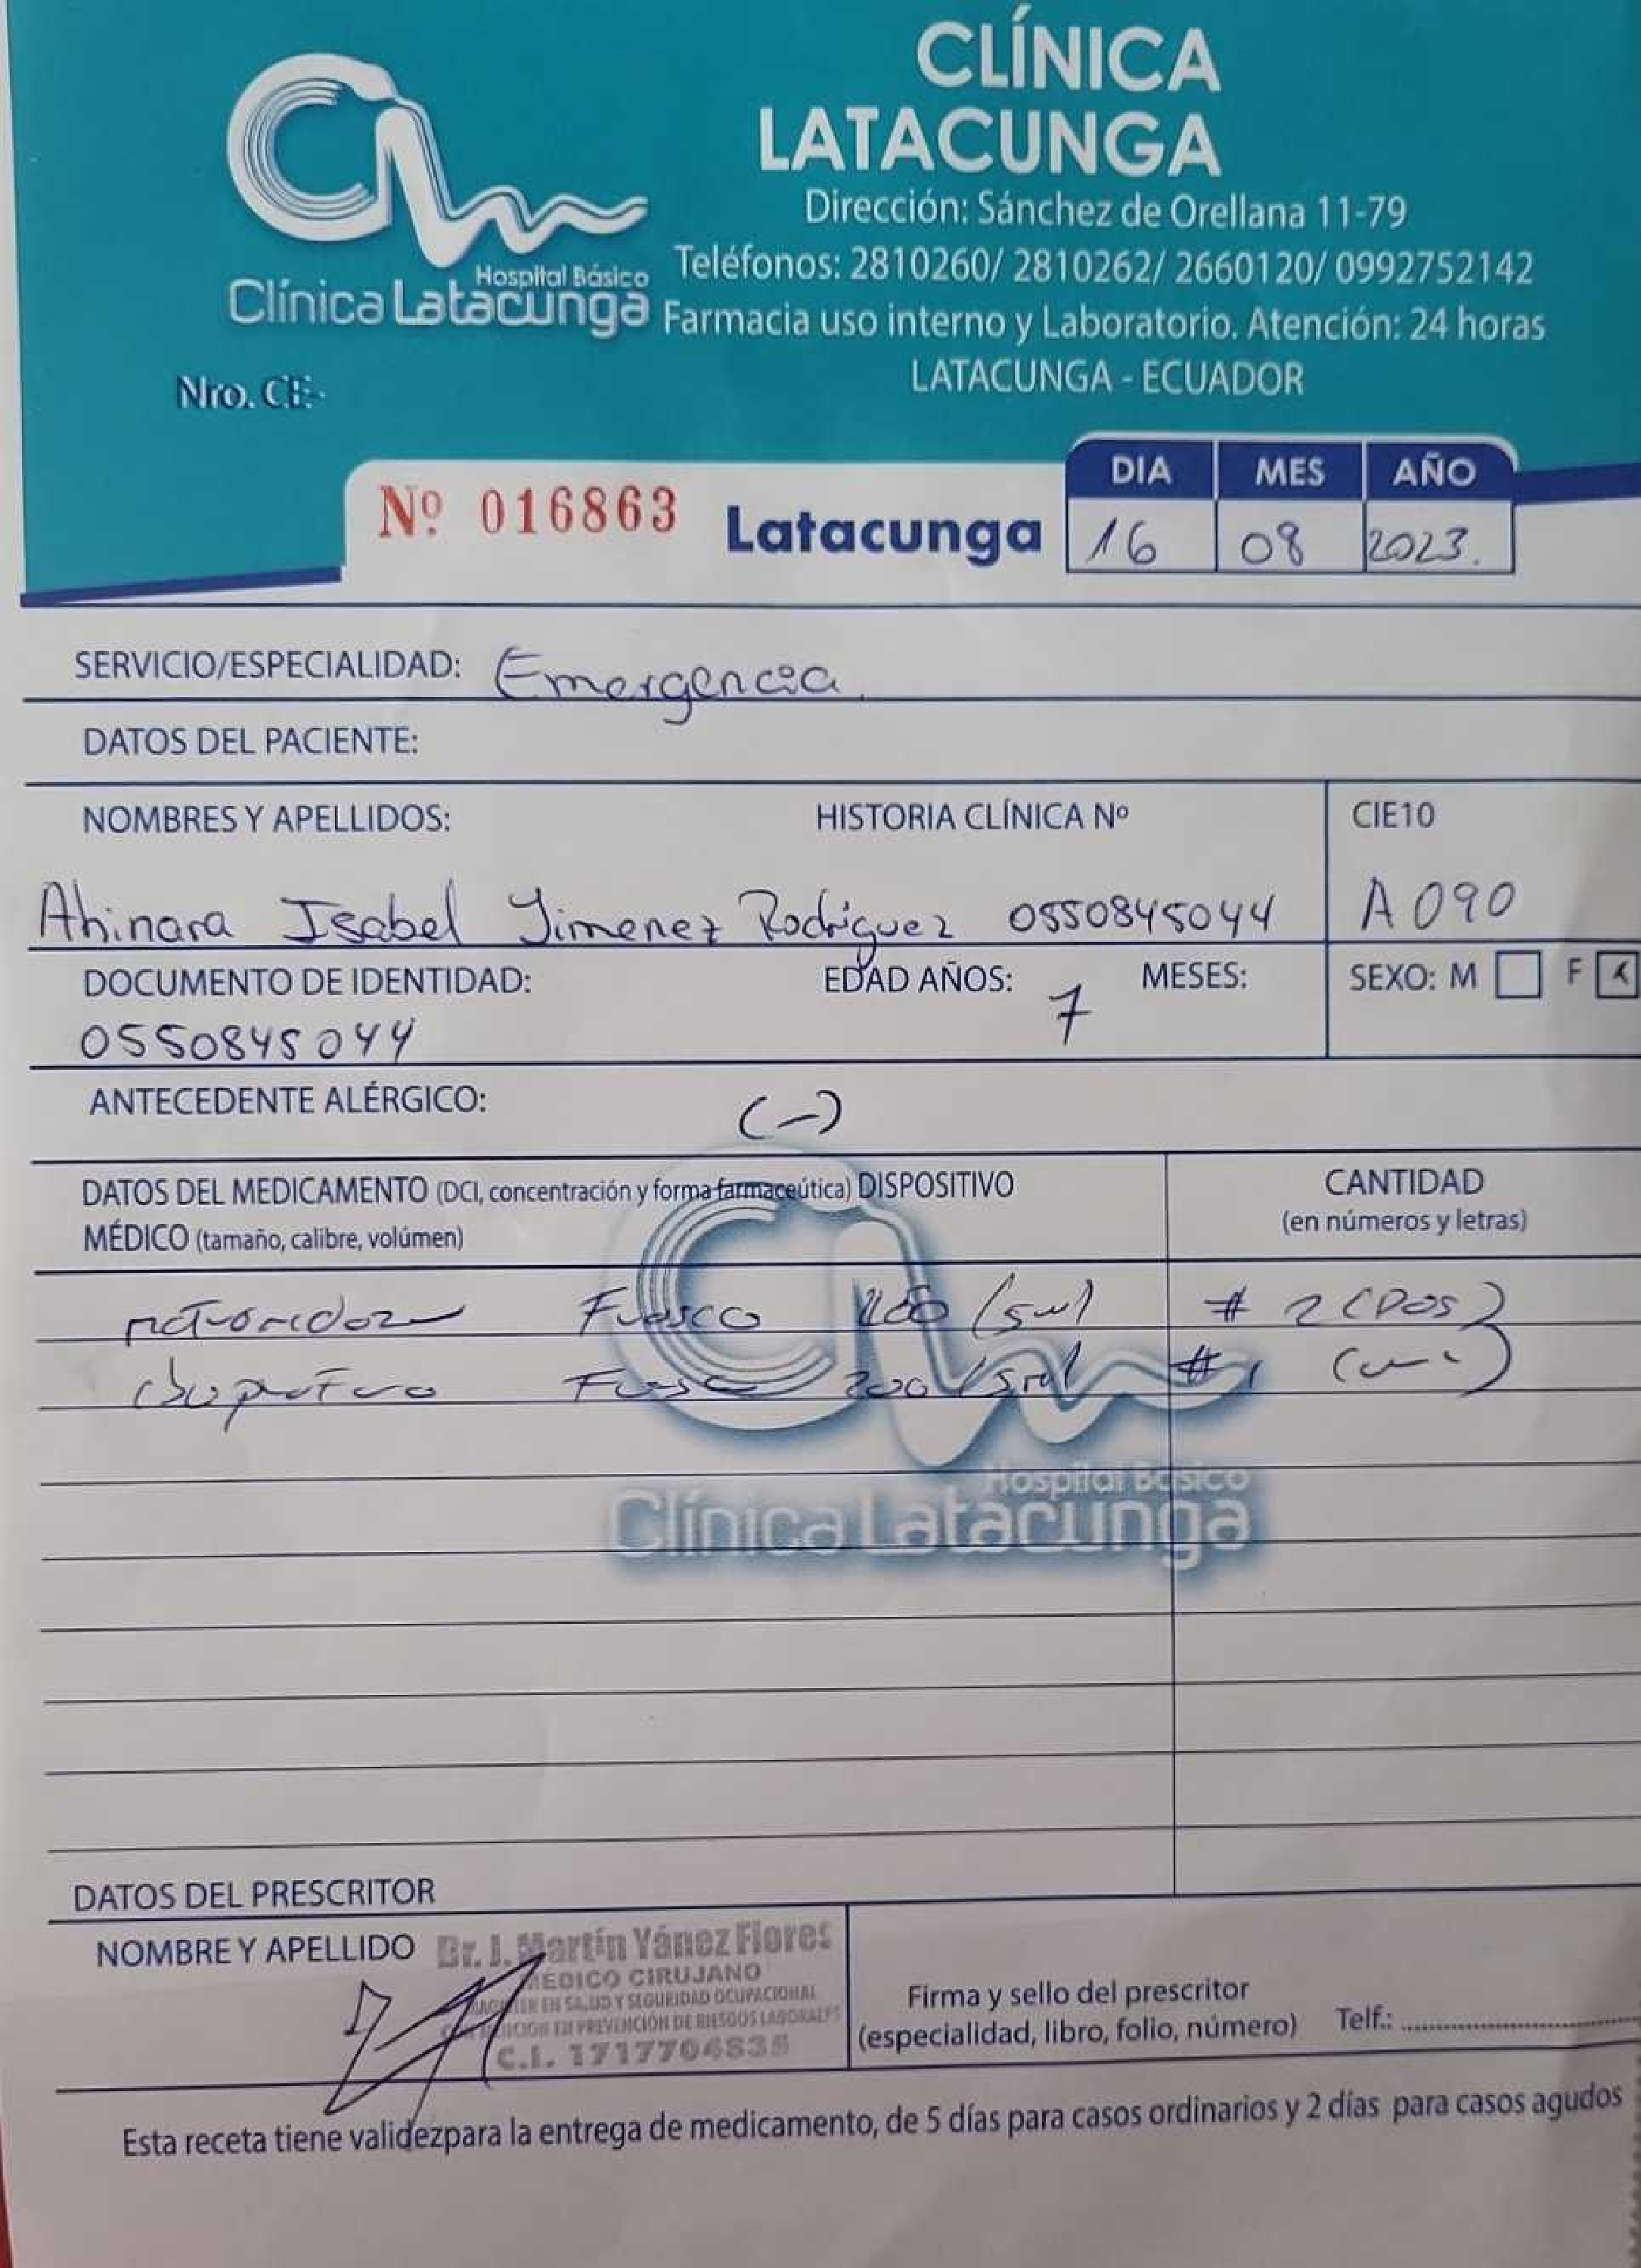 CLÍNICA
LATACUNGA
Dirección: Sánchez de Orellana 11-79
Teléfonos: 2810260/ 2810262/ 2660120/ 0992752142
Farmacia uso interno y Laboratorio. Atención: 24 horas
LATACUNGA - ECUADOR
Hospital Básico
Clínica Latacunga
Nro. CE-
Nº 016863 Latacunga
DIA MES AÑO
16 08 2023.
SERVICIO/ESPECIALIDAD: Emergencia
DATOS DEL PACIENTE:
NOMBRES Y APELLIDOS: HISTORIA CLÍNICA Nº CIE10
Ahinara Isabel Jimenez Rodriguez 0550845044 A090
DOCUMENTO DE IDENTIDAD: EDAD AÑOS: 7 MESES: SEXO: M F
0550845044
ANTECEDENTE ALÉRGICO: (-)
DATOS DEL MEDICAMENTO (DCI, concentración y forma farmaceútica) DISPOSITIVO
MÉDICO (tamaño, calibre, volúmen)
CANTIDAD
(en números y letras)
Frasco /5ml # 2 (DOS)
200/5ml # 1
Hospital Básico
Clínica Latacunga
DATOS DEL PRESCRITOR
NOMBRE Y APELLIDO Dr. J. Martín Yánez Flores
MÉDICO CIRUJANO
EN SALUD Y SEGURIDAD OCUPACIONAL
EN PREVENCIÓN DE RIESGOS LABORALES
C.I. 1717704835
Firma y sello del prescritor
(especialidad, libro, folio, número) Telf.:
Esta receta tiene validezpara la entrega de medicamento, de 5 días para casos ordinarios y 2 días para casos agudos